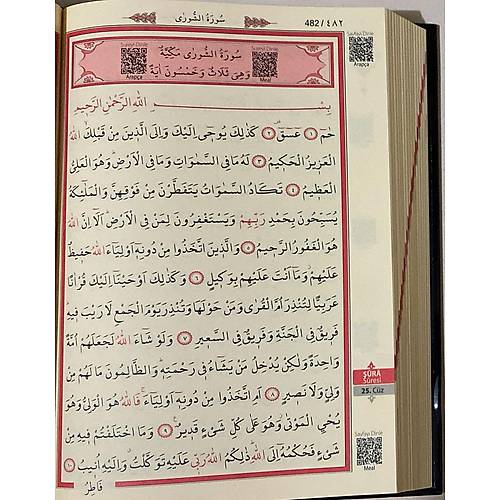 سُورَةُ الشُّورٰى
482/٤٨٢
Sureyi Dinle
Arapça
سُورَةُ الشُّورٰى مَكِّيَّةٌ
وَهِيَ ثَلَاثٌ وَخَمْسُونَ اٰيَةً
Sureyi Dinle
Meal
Sayfayı Dinle
Arapça
بِسْمِ اللّٰهِ الرَّحْمٰنِ الرَّحٖيمِ
حٰمٓ ﴿١﴾ عٓسٓقٓ ﴿٢﴾ كَذٰلِكَ يُوحٖٓي اِلَيْكَ وَاِلَى الَّذٖينَ مِنْ قَبْلِكَ اللّٰهُ
الْعَزٖيزُ الْحَكٖيمُ ﴿٣﴾ لَهُ مَا فِي السَّمٰوَاتِ وَمَا فِي الْاَرْضِ وَهُوَ الْعَلِيُّ
الْعَظٖيمُ ﴿٤﴾ تَكَادُ السَّمٰوَاتُ يَتَفَطَّرْنَ مِنْ فَوْقِهِنَّ وَالْمَلٰٓئِكَةُ
يُسَبِّحُونَ بِحَمْدِ رَبِّهِمْ وَيَسْتَغْفِرُونَ لِمَنْ فِي الْاَرْضِ اَلَٓا اِنَّ اللّٰهَ
هُوَ الْغَفُورُ الرَّحٖيمُ ﴿٥﴾ وَالَّذٖينَ اتَّخَذُوا مِنْ دُونِهٖٓ اَوْلِيَٓاءَ اللّٰهُ حَفٖيظٌ
عَلَيْهِمْ وَمَٓا اَنْتَ عَلَيْهِمْ بِوَكٖيلٍ ﴿٦﴾ وَكَذٰلِكَ اَوْحَيْنَٓا اِلَيْكَ قُرْاٰنًا
عَرَبِيًّا لِتُنْذِرَ اُمَّ الْقُرٰى وَمَنْ حَوْلَهَا وَتُنْذِرَ يَوْمَ الْجَمْعِ لَا رَيْبَ فٖيهِ
فَرٖيقٌ فِي الْجَنَّةِ وَفَرٖيقٌ فِي السَّعٖيرِ ﴿٧﴾ وَلَوْ شَٓاءَ اللّٰهُ لَجَعَلَهُمْ اُمَّةً
وَاحِدَةً وَلٰكِنْ يُدْخِلُ مَنْ يَشَٓاءُ فٖي رَحْمَتِهٖ وَالظَّالِمُونَ مَا لَهُمْ مِنْ
وَلِيٍّ وَلَا نَصٖيرٍ ﴿٨﴾ اَمِ اتَّخَذُوا مِنْ دُونِهٖٓ اَوْلِيَٓاءَ فَاللّٰهُ هُوَ الْوَلِيُّ وَهُوَ
يُحْيِ الْمَوْتٰى وَهُوَ عَلٰى كُلِّ شَيْءٍ قَدٖيرٌ ﴿٩﴾ وَمَا اخْتَلَفْتُمْ فٖيهِ مِنْ
شَيْءٍ فَحُكْمُهُٓ اِلَى اللّٰهِ ذٰلِكُمُ اللّٰهُ رَبّٖي عَلَيْهِ تَوَكَّلْتُ وَاِلَيْهِ اُنٖيبُ ﴿١٠﴾
فَاطِرُ
ŞÛRÂ
Sûresi
25. Cüz
Sayfayı Dinle
Meal